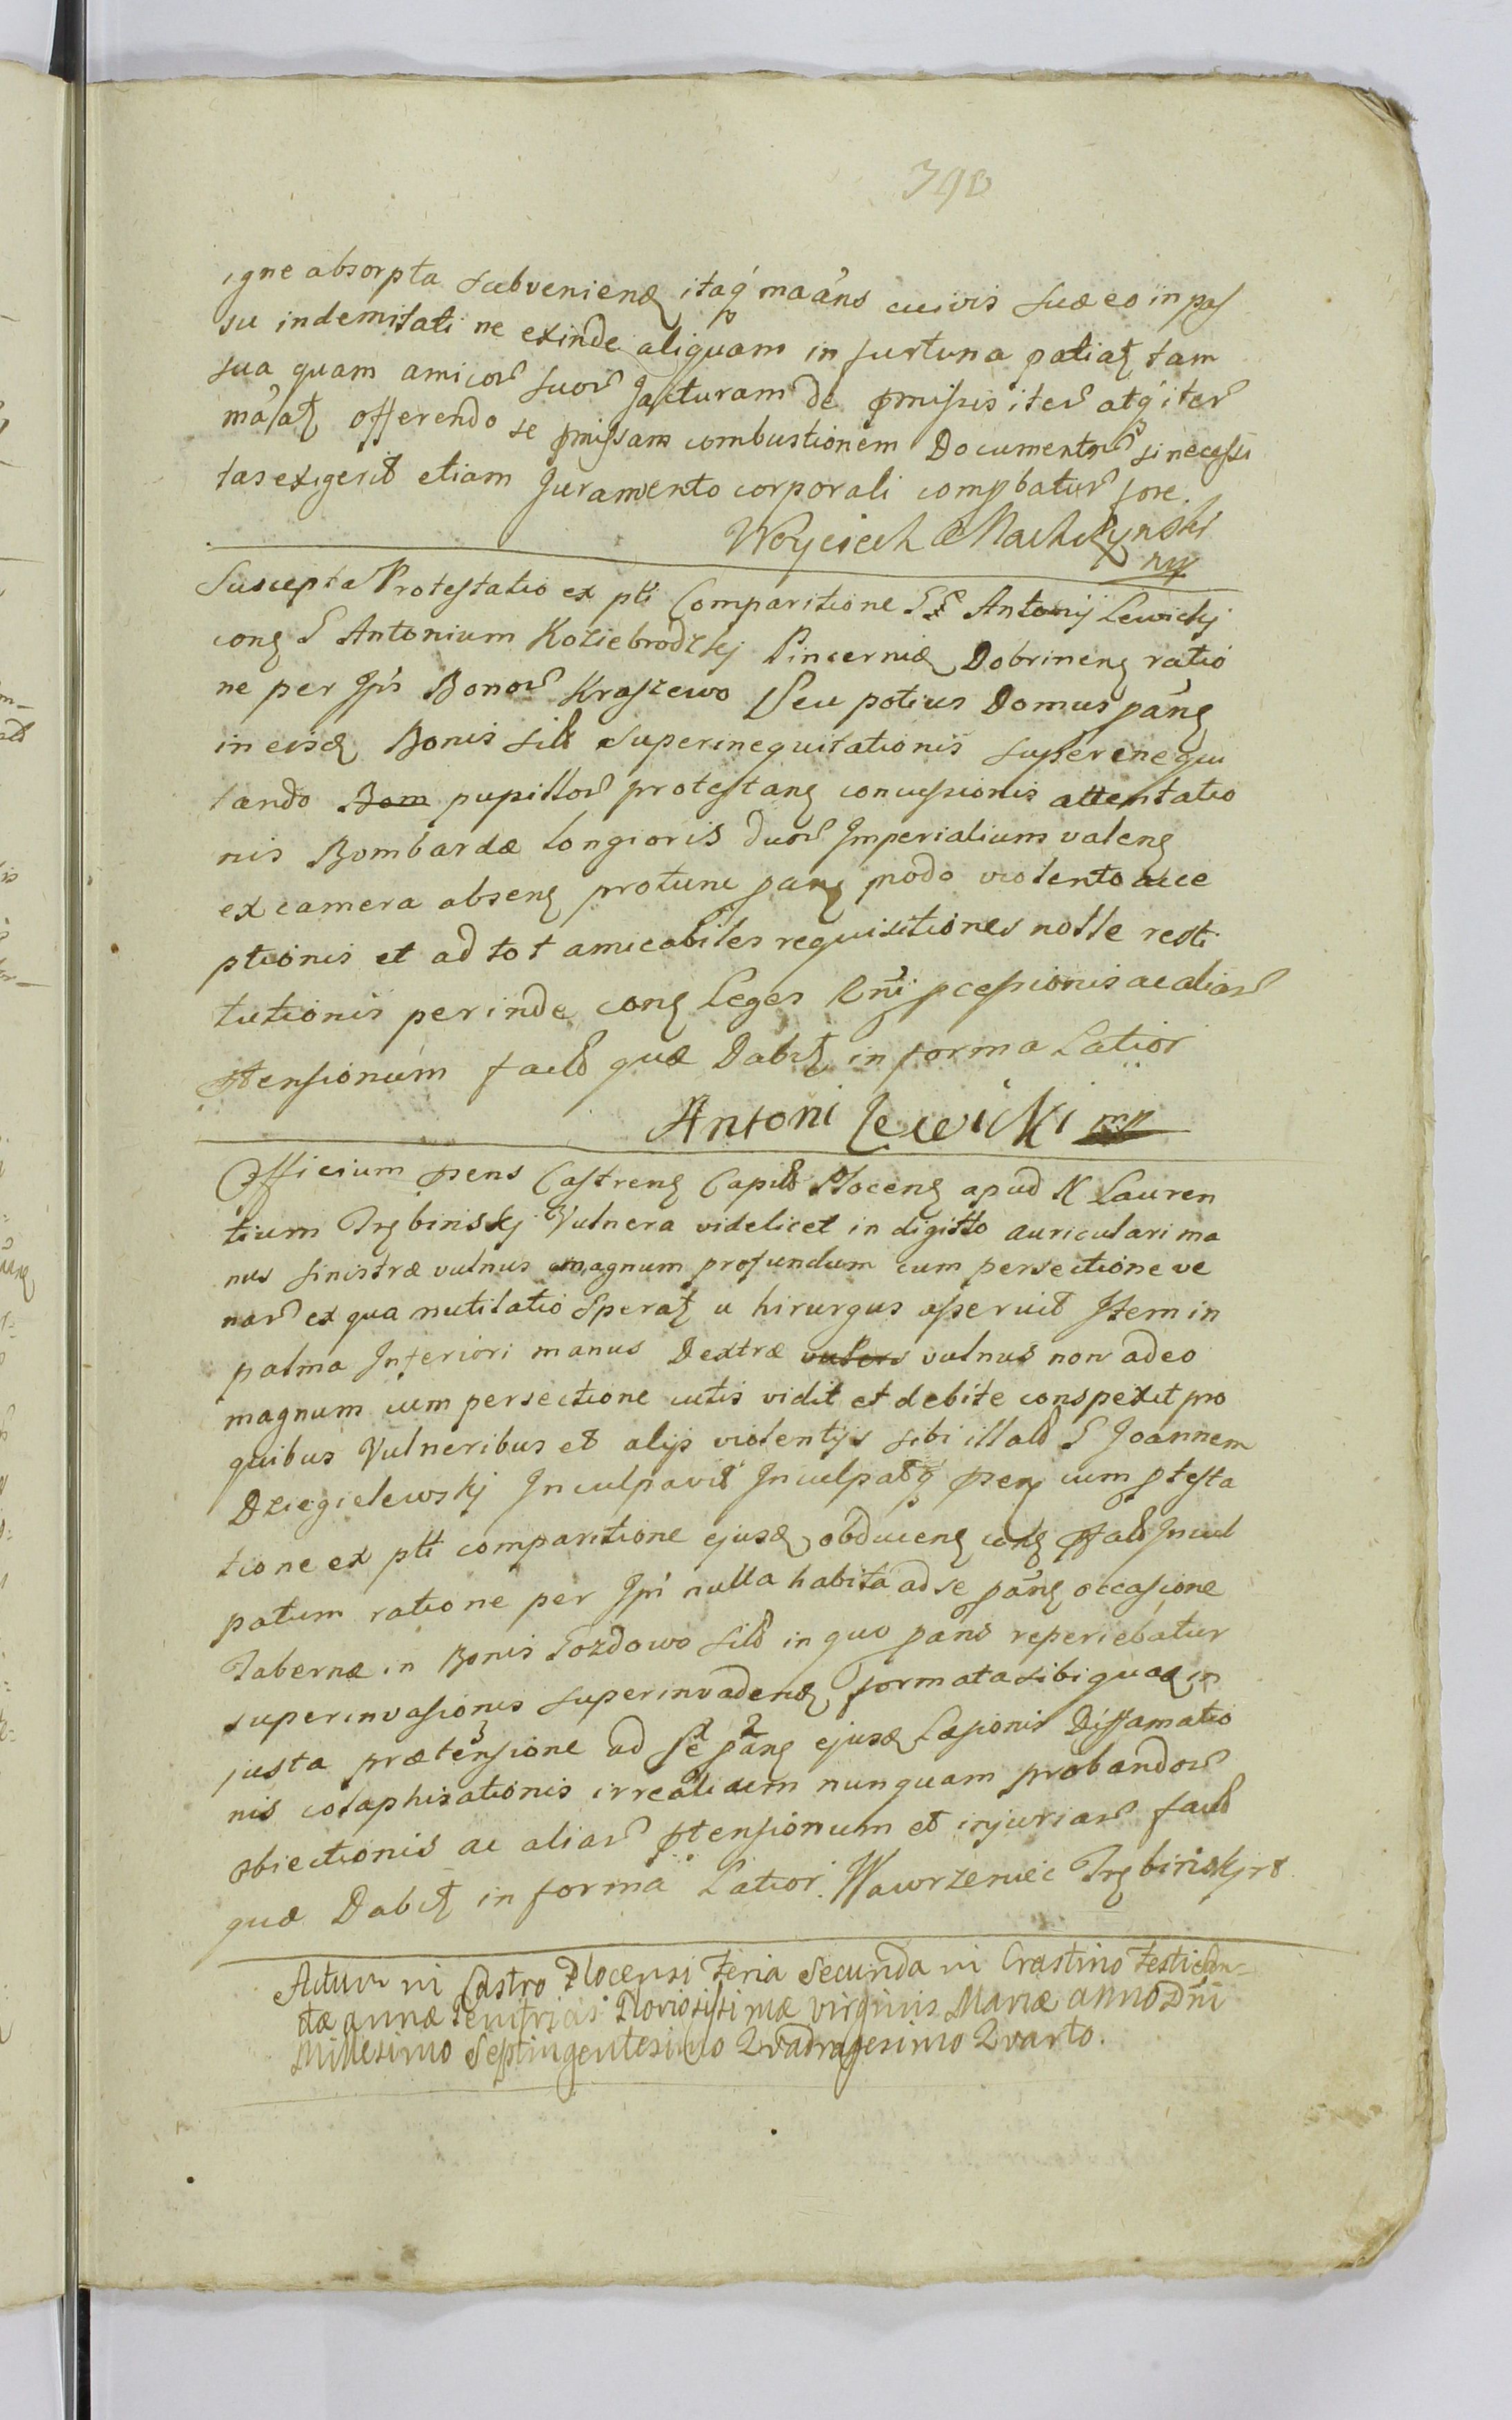 igne absorpta subveniend itaq maáns cuivis suæ eo in pas
su indemitati ne exinde aliquam in fortuna patiat tam
sua quam amicor suor Jacturam de pmissis iter atq iter
mafat offerendo se pmissam combustionem Documentor si necessi
tas exigerit etiam Juramento corporali compbatur fore.
Woyciech
Suscepta Protestatio ex pti Comparitione Antonij Lewickj
con G Antonium Koziebrodzkj Pincernid Dobrinen ratio
ne per Jpn Bonor Kraszewo Seu potius Domus pán
in eisd Bonis sit Superinequitationis superineqvi
tando Bom pupillor protestan concussionis attentatio
nis Bombardæ longioris duor Imperialium valen
ex camera absen protunc pan modo violento acce
ptionis et ad tot amicabiles requisitiones nolle resti
tutionis perinde con Leges Rni pcessionis ac alior
ptensionum fact quæ Dabit in forma Latior
Antoni Lewicki mp
Officium pens Castren Capit Plocen apud N Lauren
tium Trębinskj Vulnera videlicet in digitto auriculari ma
nus sinistræ vulnus magnum profundum cum persectione ve
nar ex qua mutilatio Sperat u hirurgus asseruit Item in
palma Inferiori manus Dextræ vulnus non adeo
magnum cum persectione cutis vidit et debite conspexit pro
quibus Vulneribus et alijs violentijs sibi illat G Joannem
Dziegielewskj Inculpavit Inculpatq psen cum ptesta
tione ex pti comparitione ejusd obducen con pfat Incul
patum ratione per Jpn nulla habita ad se pán occasione
Tabernæ in Bonis Gozdowo sit in quo páns reperiebatur
superinvasionis superinvadend formata sibi quad in
justa prætensione ad se pán ejusd Læsionis Diffamatio
nis colaphisationis irrealium nunquam probandor
obiectionis ac aliar ptensionum et injuriar fact
quæ Dabit in forma Latior. Wawrzeniec Trębinskj
Actum in Castro Plocensi Feria Secunda in Crastino Festi San-
ctæ annæ Genitricis Gloriosissimæ virginis Mariæ anno Dni
Millesimo Septingentesimo Qvadragesimo Qvarto.